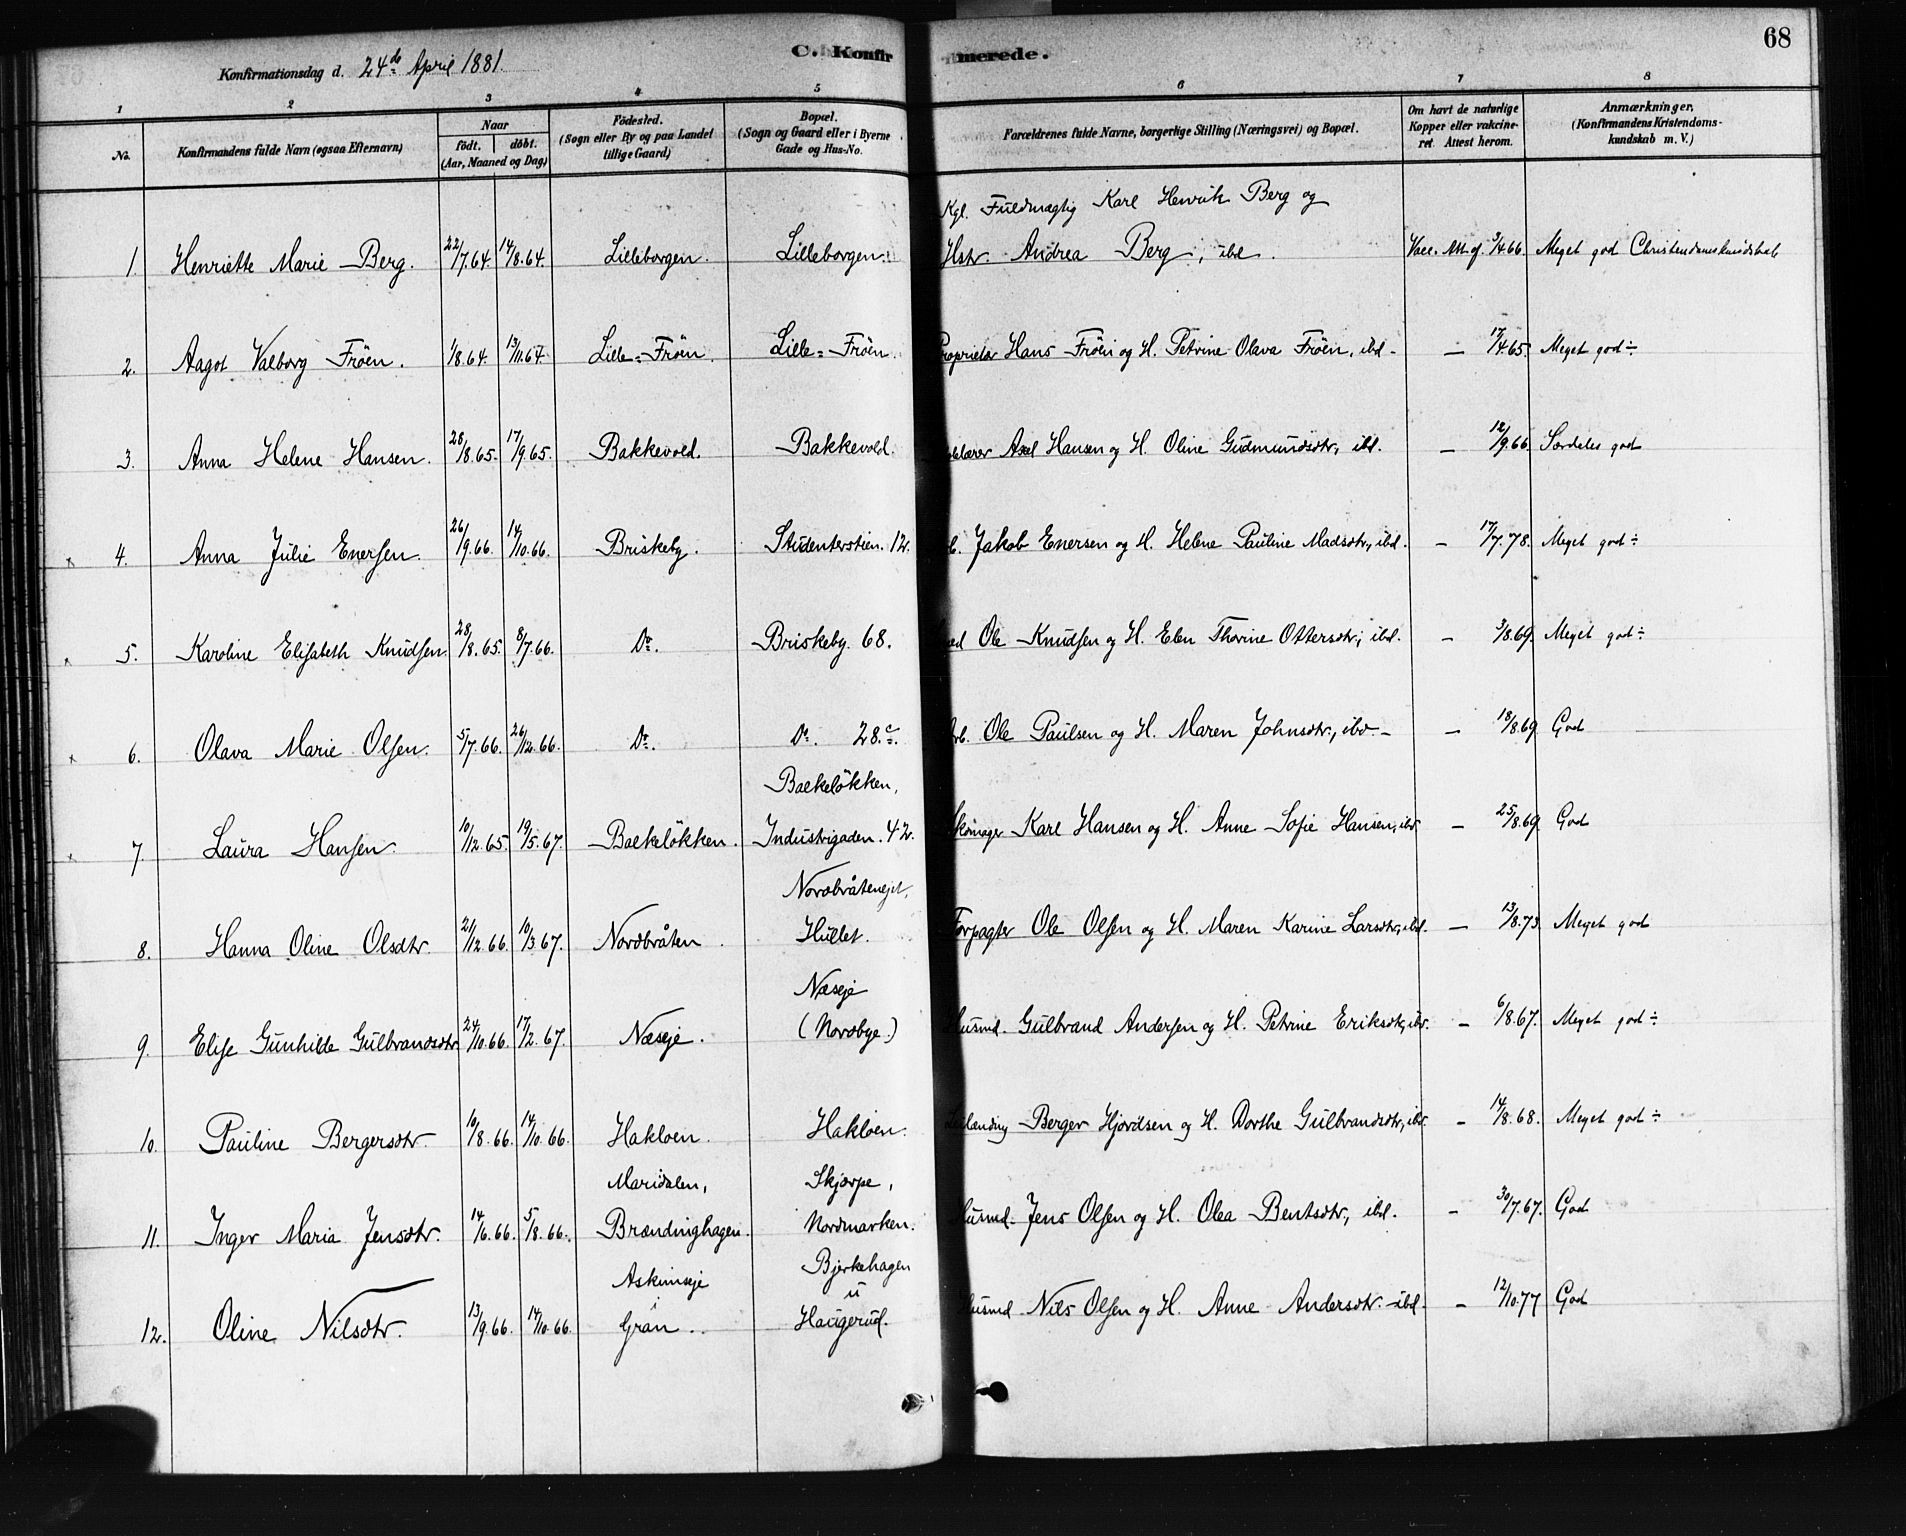 68
C. Konfirmerede.
Konfirmationsdag d. 24de April 1881.
1 2 3 4 5 6 7 8
No. Konfirmandens fulde Navn (ogsaa Efternavn) Naar født. døbt. (Aar, Maaned og Dag) Fødested. (Sogn eller By og paa Landet tillige Gaard) Bopæl. (Sogn og Gaard eller i Byerne Gade og Hus-No. Forældrenes fulde Navne, borgerlige Stilling (Næringsvei) og Bopæl. Om havt de naturlige Kopper eller vakcineret. Attest herom. Anmærkninger, (Konfirmandens Kristendomskundskab m. V.)
Kgl. Fuldmægtig Karl Henrik Berg og
1 Henriette Marie Berg. 22/7.64. 14/8.64. Lilleborgen. Lilleborgen. Hstr Andrea Berg, ibd. Vacc. Att. af 3/4 66. Meget god Christendomskundskab
2. Aagot Valborg Fröen. 1/8.64. 13/11.64. Lille=Fröen. Lille=Fröen. Proprietær Hans Fröen og H. Petrine Olava Fröen, ibd - — 17/4.65. Meget god÷
3. Anna Helene Hansen. 28/8.65. 17/9.65. Bakkevold. Bakkevold. Axel Hansen og H. Oline Gudmundsdtr, ibd. — 12/9.66. Særdeles god
x 4. Anna Julie Enersen. 26/9.66. 14/10.66. Briskeby. Studenterstien. 12. Jakob Enersen og H. Helene Pauline Madsdtr, ibd. — 17/7.78. Meget god÷
x 5. Karoline Elisabeth Knudsen. 28/8.65. 8/7.66. Do. Briskeby. 68. Ole Knudsen og H. Elen Thorine Ottersdtr, ibd. — 3/8.69. Meget god÷
x 6. Olava Marie Olsen. 5/7.66. 26/12.66. Do. Do. 28.c. Arb. Ole Paulsen og H. Maren Johnsdtr, ibd — — 18/8.69. God
Balkeløkken,
x 7. Laura Hansen. 10/12.65. 19/5.67. Balkeløkken. Industrigaden. 42. Skomager Karl Hansen og H. Anne Sofie Hansen, ibd — 25/8.69. God
Nordbråtenejet,
8. Hanna Oline Olsdtr. 21/12.66. 10/3.67. Nordbråten. Hullet. Forpagter Ole Olsen og H. Maren Karine Larsdtr, ibd. — 13/8.73. Meget god
Næseje
9. Elise Gunhilde Gulbrandsdtr 24/10.66. 17/2.67. Næseje. (Nordbye.) Husmd. Gulbrand Andersen og H. Petrine Eriksdtr, ibd. — 6/8.67. Meget god÷
10. Pauline Bergersdtr. 10/8.66. 14/10.66. Hakloen. Hakloen. Leilænding Berger Hjordsen og H. Dorthe Gulbrandsdtr, ibd. — 14/8.68. Meget god÷
Maridalen, Skjærpe,
11. Inger Maria Jensdtr. 14/6.66. 5/8.66. Brændinghagen. Nordmarken. Husmd. Jens Olsen og H. Olea Bentsdtr, ibd. — 30/7.67. God
Askimseje Bjerkehagen
i u
12. Oline Nilsdtr. 13/9.66. 14/10.66. Gran. Haugerud. Husmd Nils Olsen og H. Anne Andersdtr. ibd. — 12/10.77 God